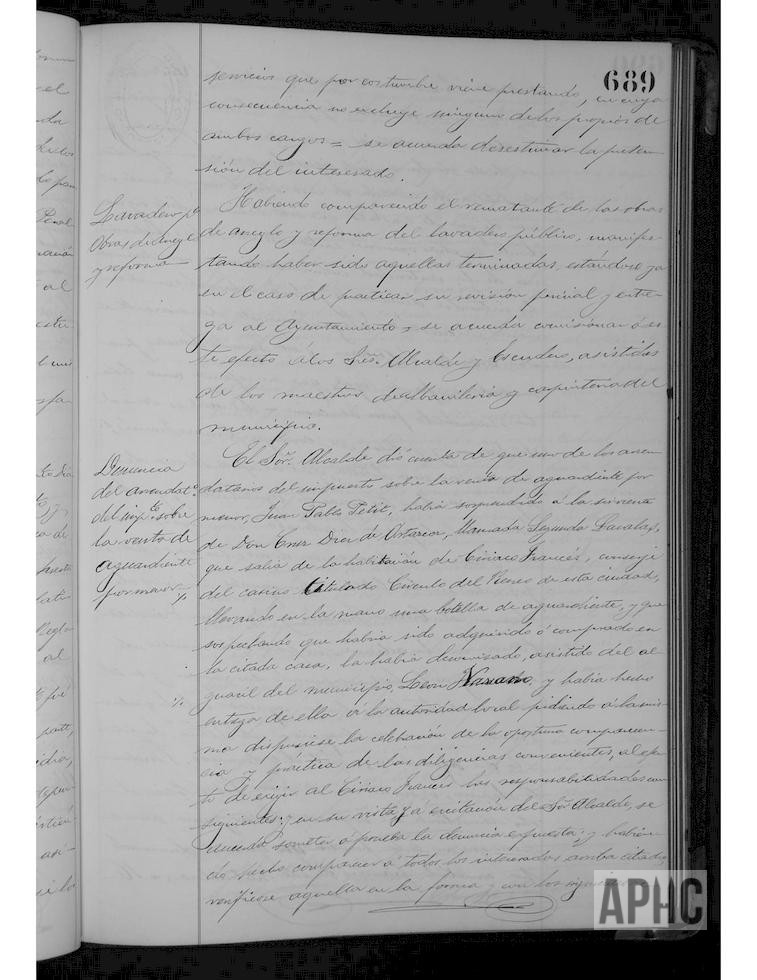 689
servicios que por costumbre viene prestando, en cuya
consecuencia no excluye ninguno de los propios de
ambos cargos = se acuerda desestimar la preten-
sión del interesado.
Lavadero pco
Obras de arreglo
y reforma
Habiendo comparecido el rematante de las obras
de arreglo y reforma del lavadero público, manifes-
tando haber sido aquellas terminadas, estándose ya
en el caso de practicar su revisión pericial y entre-
ga al Ayuntamiento = se acuerda comisionar á es-
te efecto á los Sres. Alcalde y Escudero, asistidos
de los maestros de albañileria y carpinteria del
municipio.
Denuncia
del arrendato.
del impto. sobre
la venta de
aguardiente
por menor
El Sor. Alcalde dió cuenta de que uno de los arren-
datarios del impuesto sobre la venta de aguardiente por
menor, Juan Pablo Petit, habia sorprendido á la sirvienta
de Don Cruz Diez de, llamada Segunda
que salia de la habitación de Ciriaco Francés, conserje
del casino titulado Circulo del de esta ciudad,
llevando en la mano una botella de aguardiente, y que
sospechando que habria sido adquirido ó comprado en
la citada casa, la habia decomisado, asistido del al-
guacil del municipio, Leon Navarro, y habia hecho
entrega de ella á la autoridad local pidiendo á la mis-
ma dispusiese la celebración de la oportuna comparecen-
cia y práctica de las diligencias convenientes, al efec-
to de exigir al Ciriaco Francés las responsabilidades con-
siguientes; y en su vista y á excitación del Sor. Alcalde, se
acuerda someter á prueba la denuncia expuesta; y habien-
do hecho comparecer á todos los interesados arriba citados
verificose aquella en la forma y con los siguientes
APHC